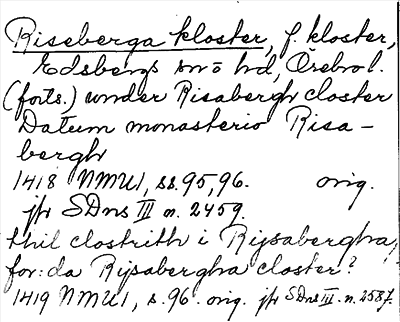 Riseberga kloster, f. kloster,
Edsbergs sn o hd, Örebro l.
(forts.) under Risabergh closter
Datum monasterio Risa-
bergh
1418 NMU1, ss. 95, 96. orig.
jfr SDns III n. 2459.
thil clostrith i Rijsabergha,
for:da Rijsabergha closter?
1419 NMU1, s. 96. orig. jfr SDns III n. 2587.